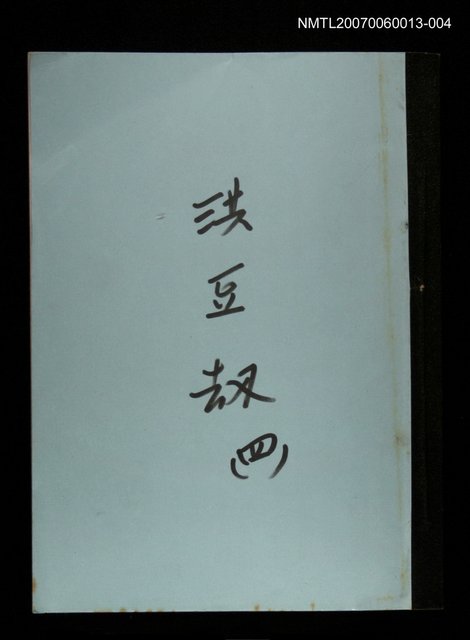 NMTL20070060013-004
洪
豆
刼
(四)